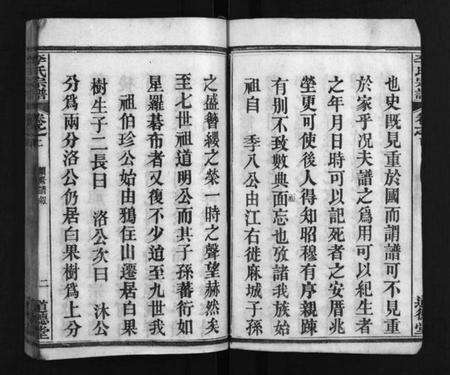 也史既見重於國而謂譜可不見重
於家乎况夫譜之爲用可以紀生者
之年月日時可以記死者之安厝兆
塋更可使後人得知昭穆有序親踈
有別不致數典而忘也攷諸我族始
祖自 季八公由江右徙麻城子孫
之盛簪纓之榮一時之聲望赫然矣
至七世祖道明公而其子孫蕃衍如
星羅碁布者又復不少迨至九世我
祖伯珍公始由鴉在山遷居白果
樹生子二長曰 洛公次曰 沐公
分爲兩分洛公仍居白果樹爲上分
李氏宗譜
卷之
二
道德堂